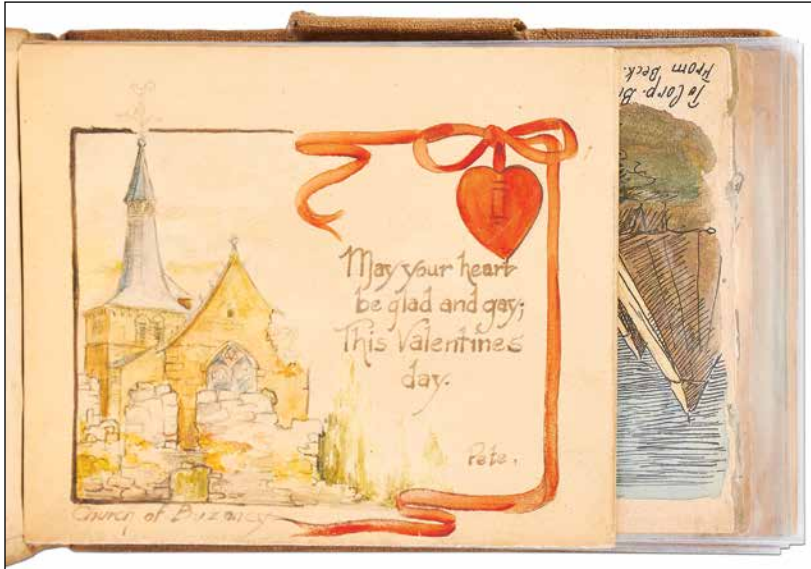 May your heart
be glad and gay;
This Valentines
day.
Pete.
Church of Buzancy
To Corp.
From Beck.